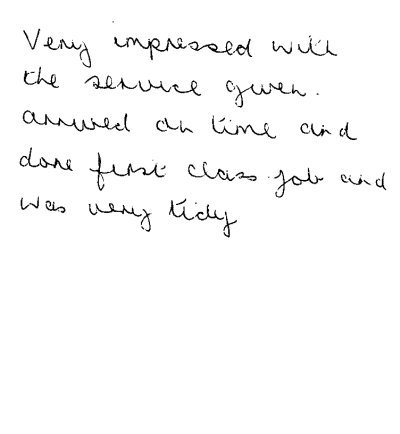 Very impressed with
the service given.
arrived on time and
done first class job and
was very tidy